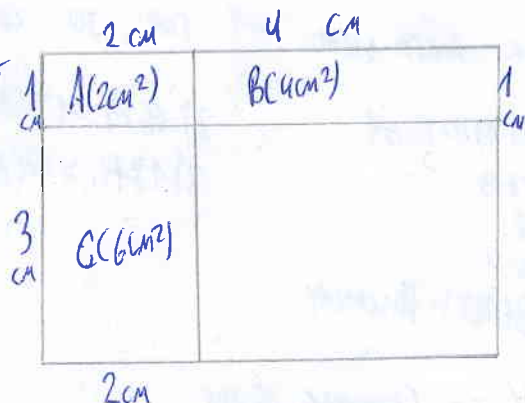 2 см 4 см
1 см A(2см²) B(4см²) 1 см
3 см C(6см²)
2см